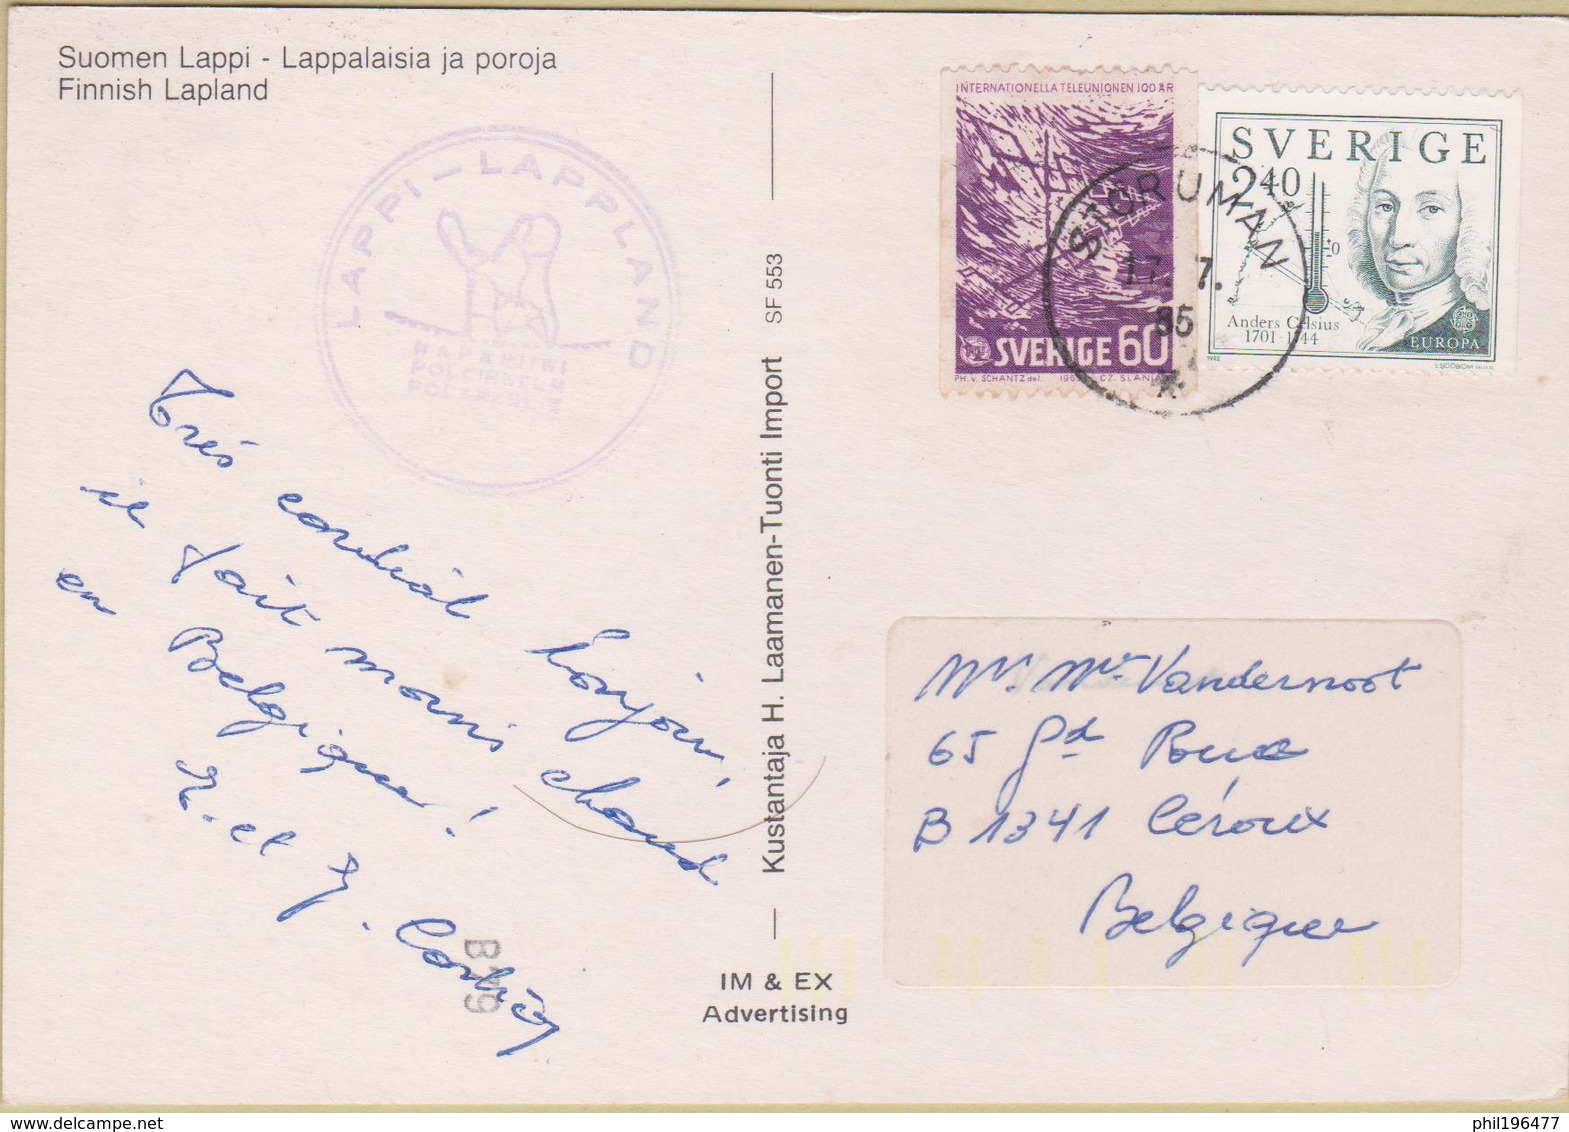 Suomen Lappi - Lappalaisia ja poroja
Finnish Lapland
LAPPI – LAPPLAND
NAPAPIIRI
INTERNATIONELLA TELEUNIONEN 100 ÅR
SVERIGE 60
PH. v. SCHANTZ del. 1965 CZ. SLANIA
SVERIGE
2.40
0
Anders Celsius
1701-1744
EUROPA
1982
STORUMAN
17. 7.
85
Très cordial bonjour,
il fait moins chaud
en Belgique!
SF 553
Kustantaja H. Laamanen-Tuonti Import
IM & EX
Advertising
Mr. Mr. Vandernoot
65 Gd Rue
B 1341 Céroux
Belgique
www.delcampe.net
phil196477